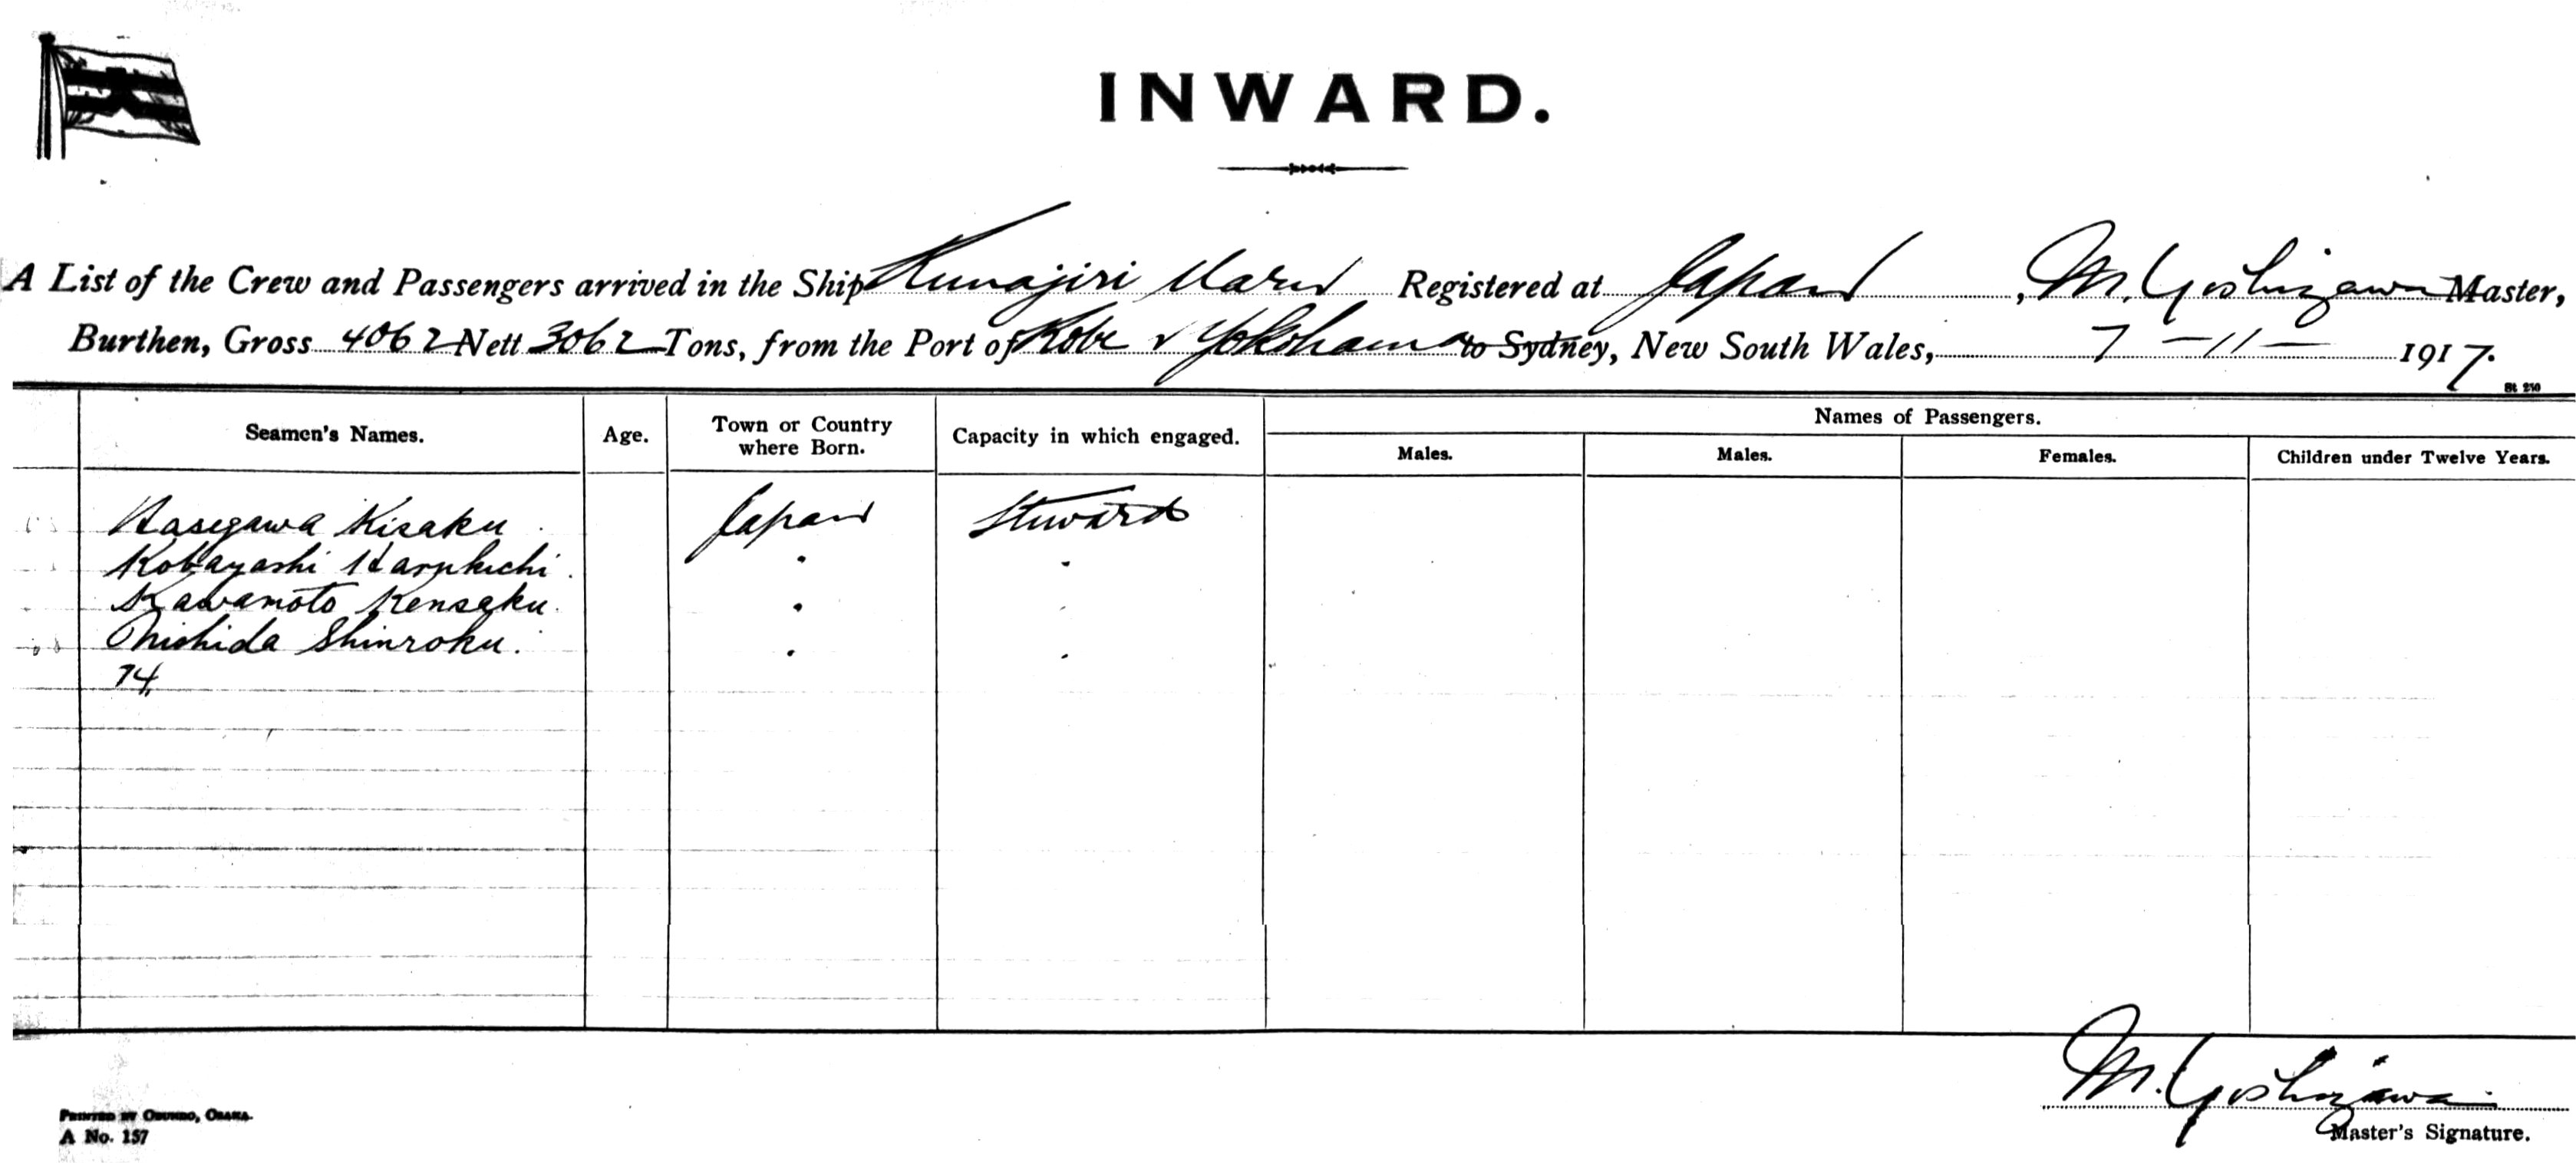 INWARD.
A List of the Crew and Passengers arrived in the Ship Kunajiri Maru Registered at Japan, M. Yoshizawa Master,
Burthen, Gross 4062 Nett 3062 Tons, from the Port of Kobe & Yokohama to Sydney, New South Wales, 7-11-1917.
St 210
Names of Passengers.
Seamen's Names. Age. Town or Country where Born. Capacity in which engaged. Males. Males. Females. Children under Twelve Years.
Hasegawa Kisaku Japan Steward
Kobayashi Harukichi
Kawamoto Kensaku
Nishida Shinroku
74
M. Yoshizawa
Master's Signature.
PRINTED BY OSAKA.
A No. 157